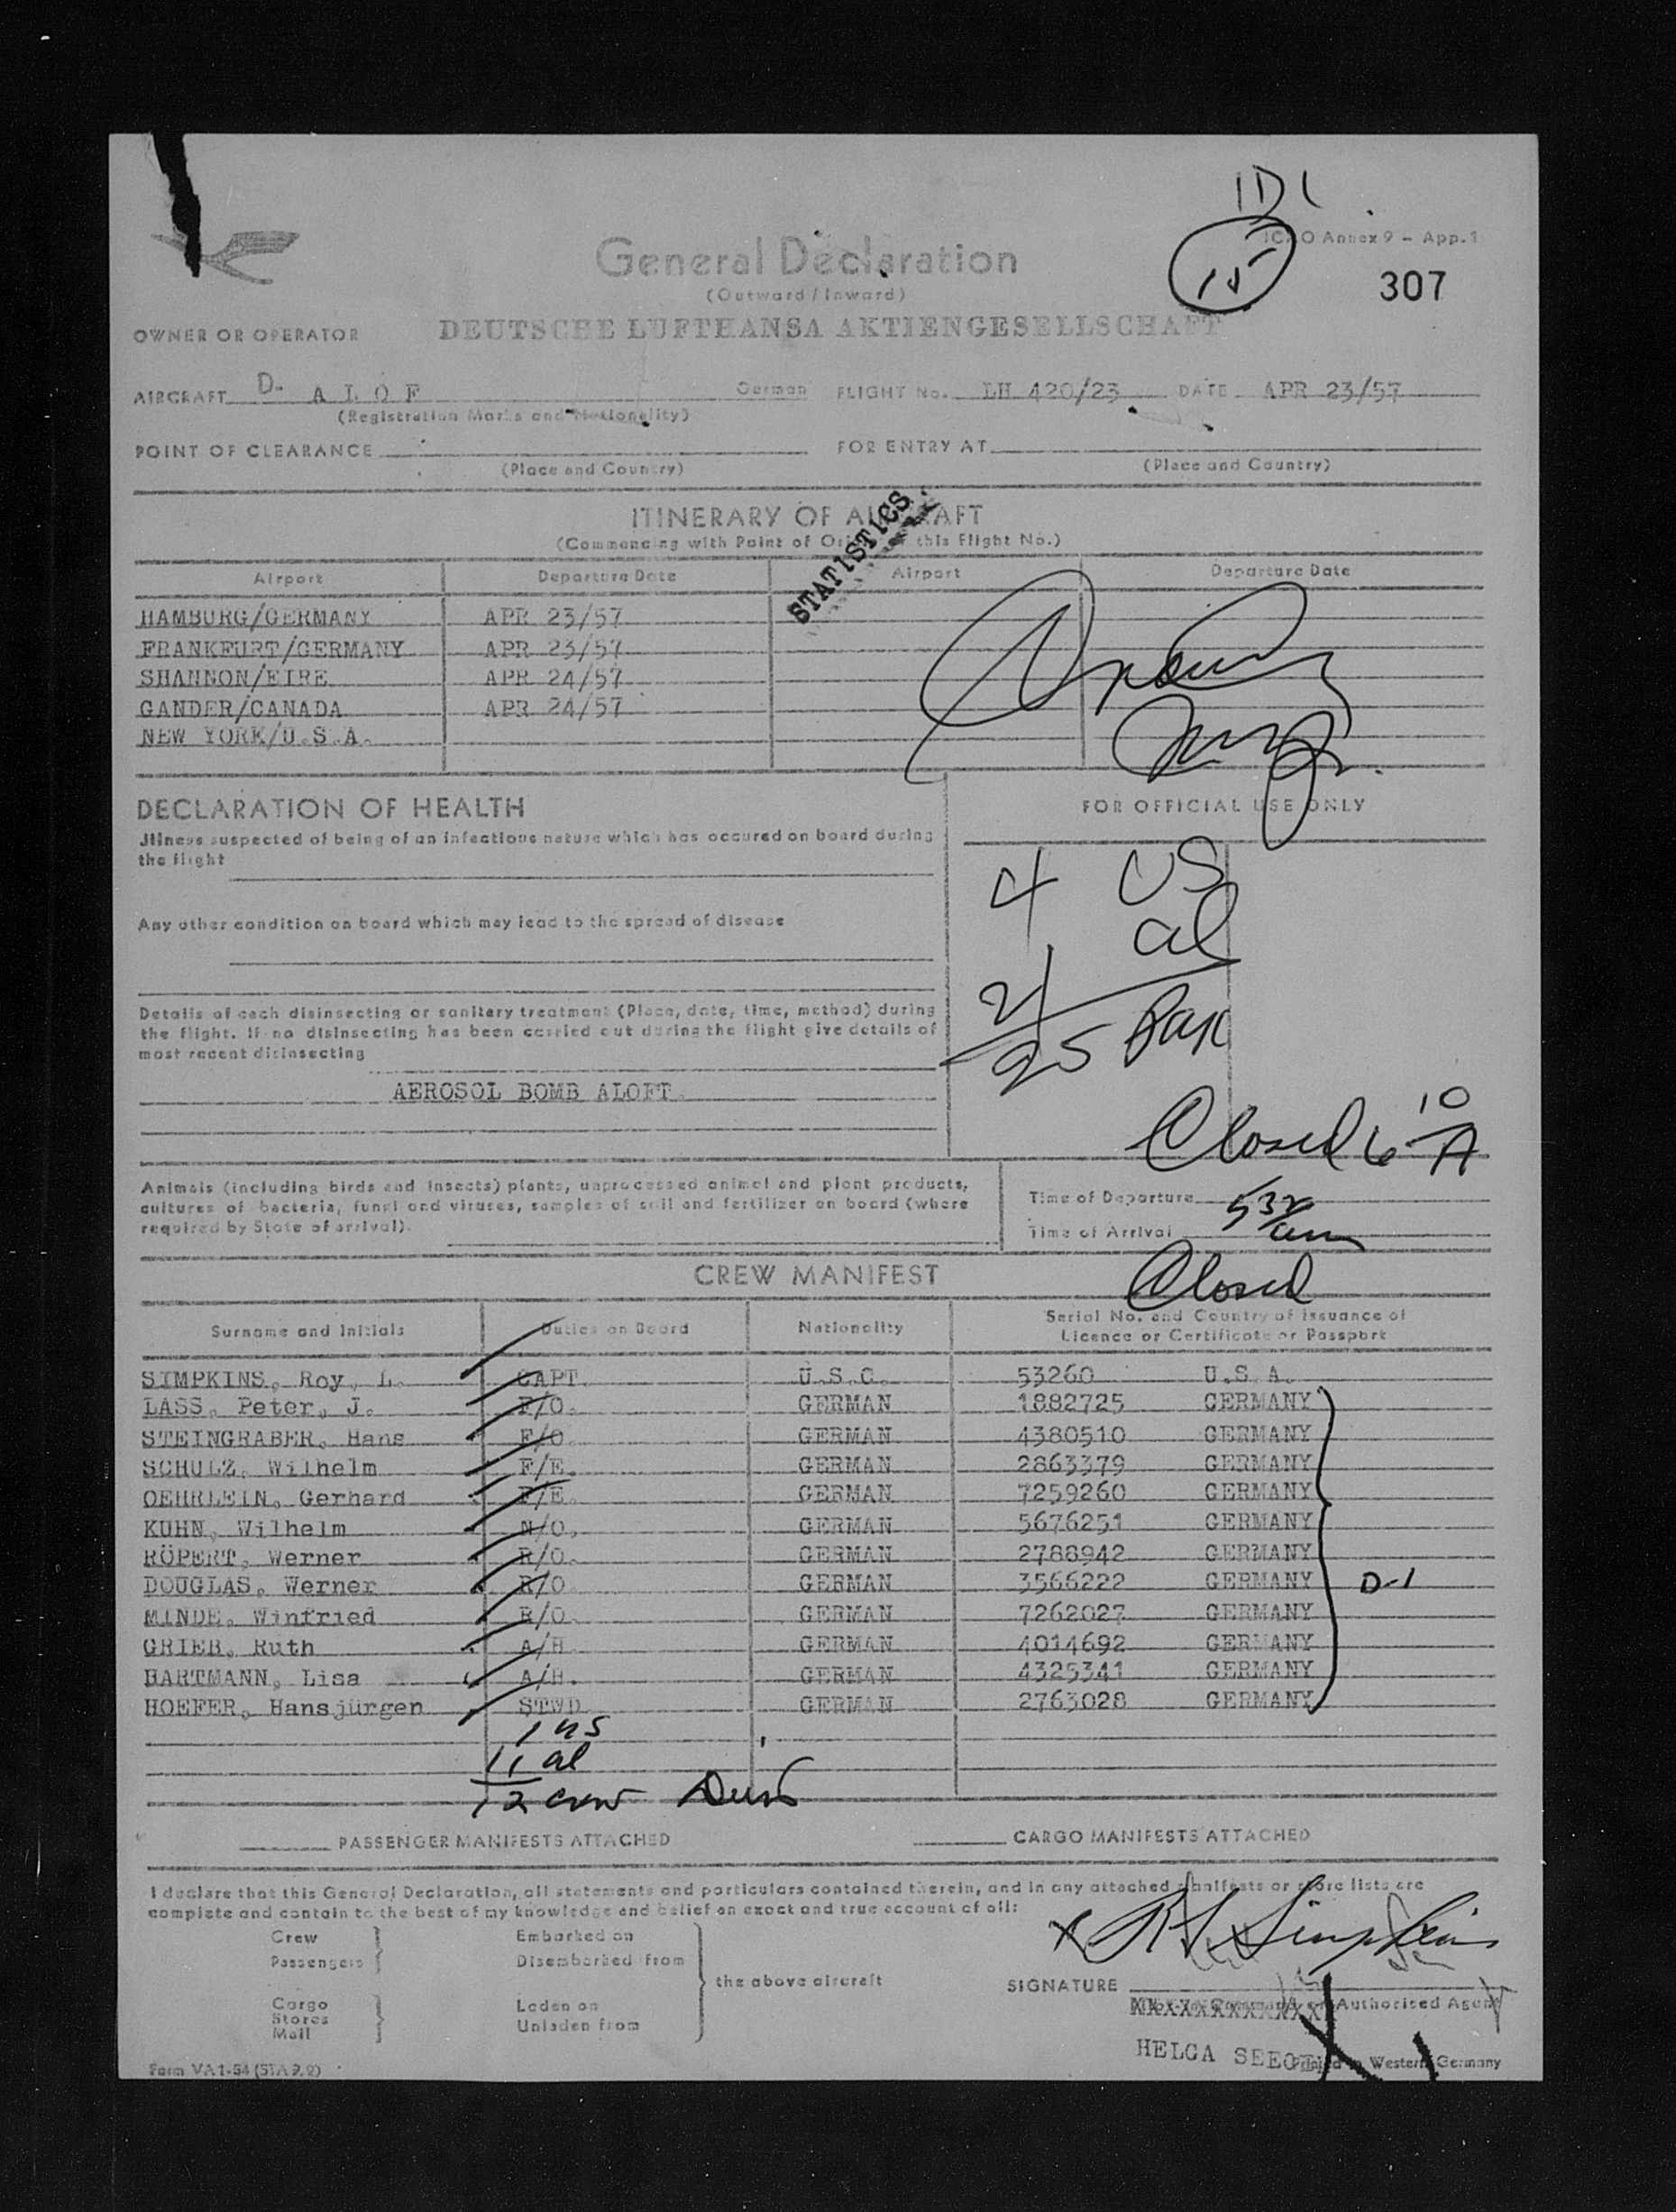 1D1
15
ICAO Annex 9 – App. 1
307
General Declaration
(Outward / Inward)
OWNER OR OPERATOR DEUTSCHE LUFTHANSA AKTIENGESELLSCHAFT
AIRCRAFT D- A L O F German FLIGHT No. LH 420/23 DATE APR 23/57
(Registration Marks and Nationality)
POINT OF CLEARANCE FOR ENTRY AT
(Place and Country) (Place and Country)
STATISTICS
ITINERARY OF AIRCRAFT
(Commencing with Point of Origin this Flight No.)
Airport Departure Date Airport Departure Date
HAMBURG/GERMANY APR 23/57
FRANKFURT/GERMANY APR 23/57
SHANNON/EIRE APR 24/57
GANDER/CANADA APR 24/57
NEW YORK/U.S.A.
DECLARATION OF HEALTH
FOR OFFICIAL USE ONLY
Jllness suspected of being of an infectious nature which has occured on board during
the flight
4 US
21 al
25 Pax
Any other condition on board which may lead to the spread of disease
Details of each disinsecting or sanitary treatment (Place, date, time, method) during
the flight. If no disinsecting has been carried out during the flight give details of
most recent disinsecting
AEROSOL BOMB ALOFT.
Closed 6 10 A
Animals (including birds and insects) plants, unprocessed animal and plant products,
cultures of bacteria, fungi and viruses, samples of soil and fertilizer on board (where
required by State of arrival).
Time of Departure
Time of Arrival 532 am
Closed
CREW MANIFEST
Surname and Initials Duties on Board Nationality Serial No. and Country of issuance of
Licence or Certificate or Passport
SIMPKINS, Roy, L. CAPT. U.S.C. 53260 U.S.A.
LASS, Peter, J. F/O. GERMAN 1882725 GERMANY
STEINGRABER, Hans F/O. GERMAN 4380510 GERMANY
SCHULZ, Wilhelm F/E. GERMAN 2863379 GERMANY
OEHRLEIN, Gerhard F/E. GERMAN 7259260 GERMANY
KUHN, Wilhelm N/O. GERMAN 5676251 GERMANY
RÖPERT, Werner R/O. GERMAN 2788942 GERMANY
DOUGLAS, Werner R/O. GERMAN 3566222 GERMANY D-1
MINDE, Winfried R/O. GERMAN 7262027 GERMANY
GRIEB, Ruth A/H. GERMAN 4014692 GERMANY
HARTMANN, Lisa A/H. GERMAN 4325341 GERMANY
HOEFER, Hansjürgen STWD. GERMAN 2763028 GERMANY
1 US
11 al
12 crew
PASSENGER MANIFESTS ATTACHED CARGO MANIFESTS ATTACHED
I declare that this General Declaration, all statements and particulars contained therein, and in any attached manifests or store lists are
complete and contain to the best of my knowledge and belief an exact and true account of all:
Crew Embarked on
Passengers Disembarked from
the above aircraft
Cargo Laden on
Stores Unladen from
Mail
R L Simpkins
SIGNATURE
Authorised Agent
HELGA
Printed in Western Germany
Form VA 1-54 (STA 9.9)